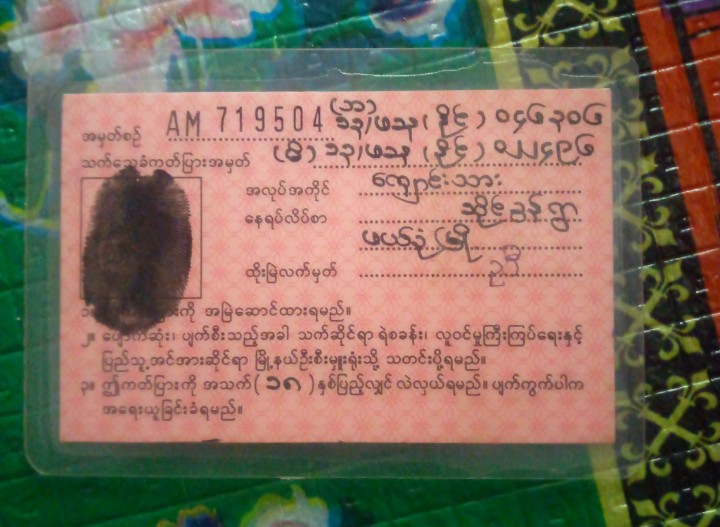 အမှတ်စဉ် AM 719504 (ဘ) ၁၃/ဖသန (နိုင်) ၀၄၆၃၀၆
သက်သေခံကတ်ပြားအမှတ် (မိ) ၁၃/ဖသန (နိုင်) ၀၂၂၄၉၆
အလုပ်အကိုင် ကျောင်းသား
နေရပ်လိပ်စာ ဆိုင်ခွန် ရွာ
ဖယ်ခုံ မြို့
ထိုးမြဲလက်မှတ်
၁။ ကို အမြဲဆောင်ထားရမည်။
၂။ ပျောက်ဆုံး၊ ပျက်စီးသည့်အခါ သက်ဆိုင်ရာ ရဲစခန်း၊ လူဝင်မှုကြီးကြပ်ရေးနှင့်
ပြည်သူ့အင်အားဆိုင်ရာ မြို့နယ်ဦးစီးမှူးရုံးသို့ သတင်းပို့ရမည်။
၃။ ဤကတ်ပြားကို အသက် (၁၈) နှစ်ပြည့်လျှင် လဲလှယ်ရမည်။ ပျက်ကွက်ပါက
အရေးယူခြင်းခံရမည်။